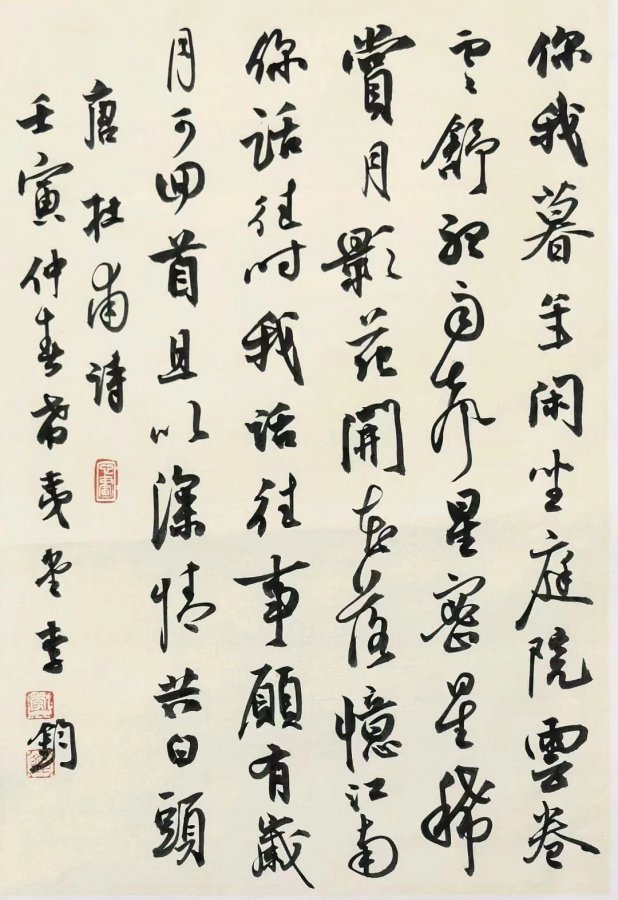 你我暮年閑坐庭院雲卷
雲舒聽雨声星密星稀
賞月影花開花落憶江南
你話往时我話往事願有歲
月可回首且以深情共白頭
唐杜甫詩
壬寅仲春希夷堂李鈞